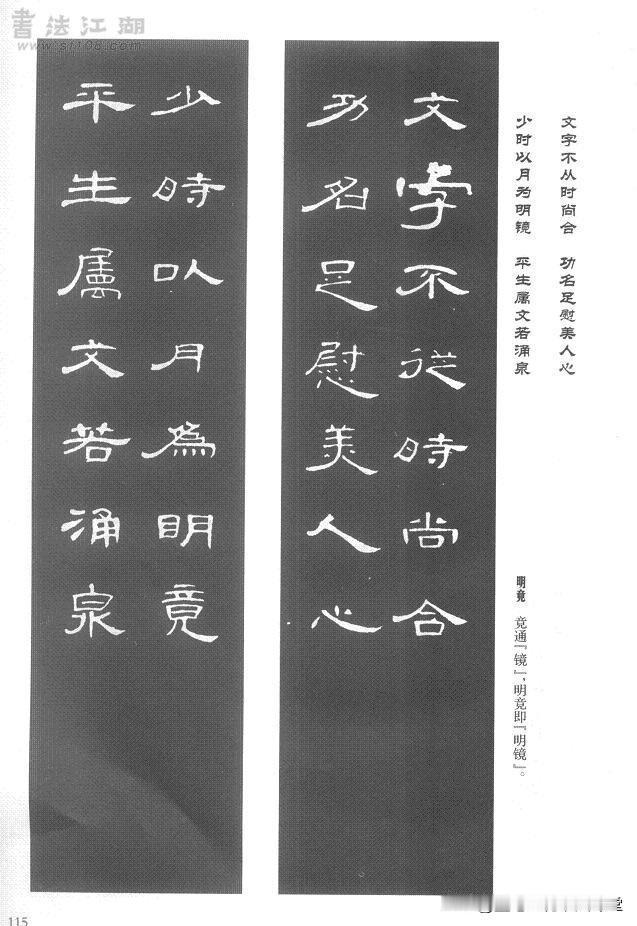 書法江湖
www.sf108.com
文字不从时尚合　功名足慰美人心
少时以月为明镜　平生属文若涌泉
文字不從時尚合
功名足慰美人心
少時以月為明竟
平生属文若涌泉
明竟　竟通『镜』，明竟即『明镜』。
115